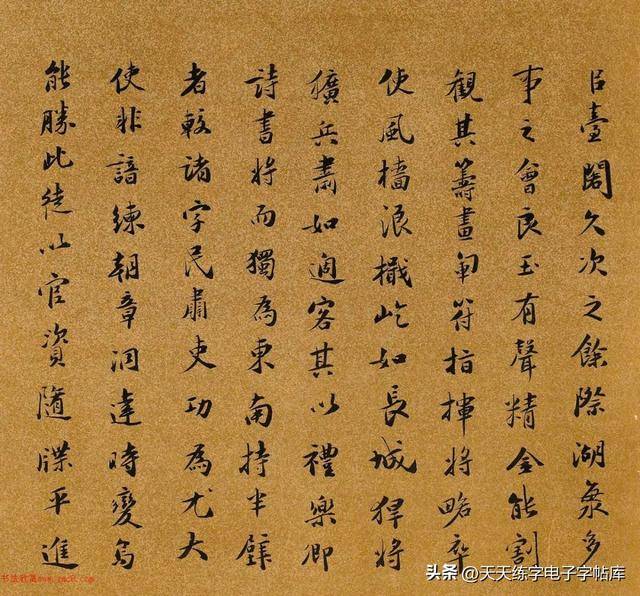 㠯臺閣久次之餘際湖氛多
事之會良玉有聲精金能割
觀其籌畫符指揮將略卒
使風檣浪檝屹如長城猂將
獷兵肅如適客其以禮樂卽
詩書將而獨為東南持半壁
者較諸字民肅吏功為尤大
使非諳練朝章洞達時變烏
能勝此徒以官資隨牒平進
头条 @天天练字电子字帖库
书法欣赏